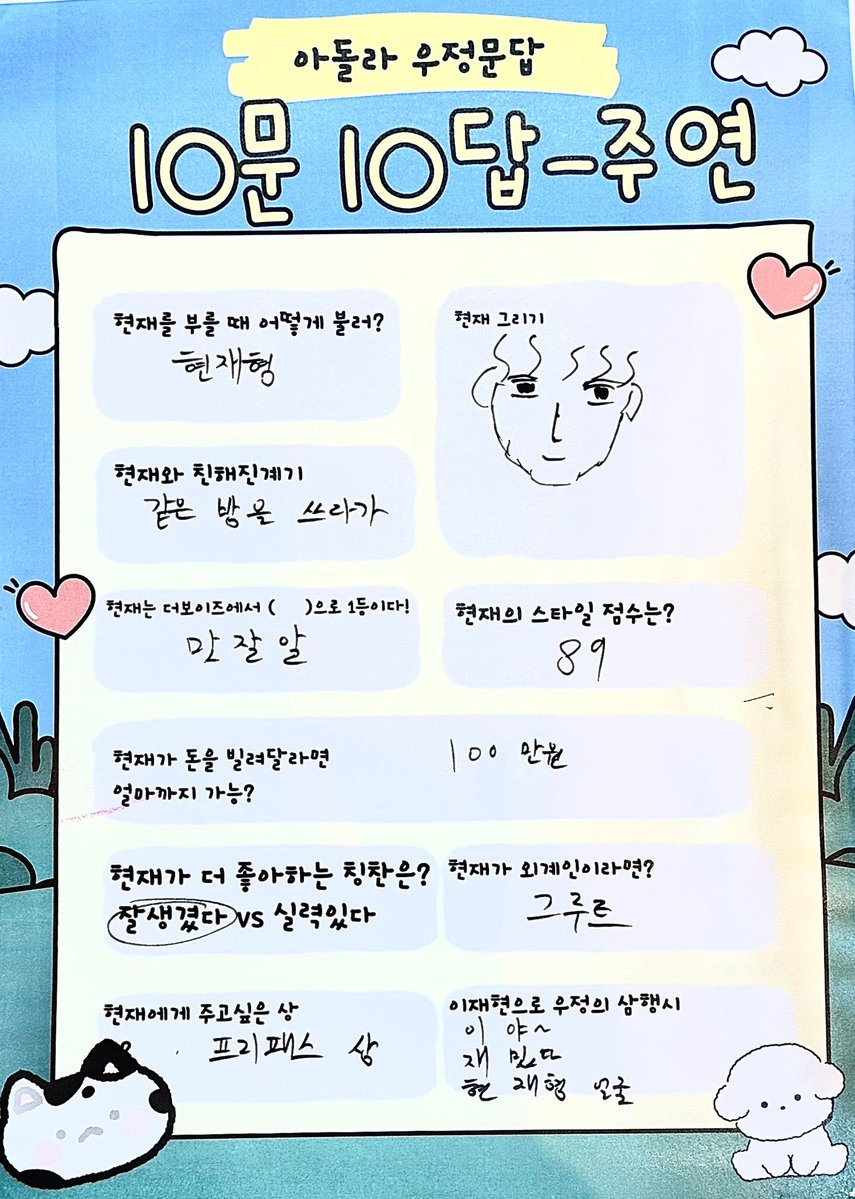 아돌라 우정문답
10문 10답-주연
현재를 부를 때 어떻게 불러?
현재형
현재 그리기
현재와 친해진계기
같은 방을 쓰다가
현재는 더보이즈에서 ( )으로 1등이다!
맛잘알
현재의 스타일 점수는?
89
현재가 돈을 빌려달라면
얼마까지 가능?
100 만원
현재가 더 좋아하는 칭찬은?
잘생겼다 vs 실력있다
현재가 외계인이라면?
그루트
현재에게 주고싶은 상
프리패스 상
이재현으로 우정의 삼행시
이 야~
재 밌다
현 재형 얼굴